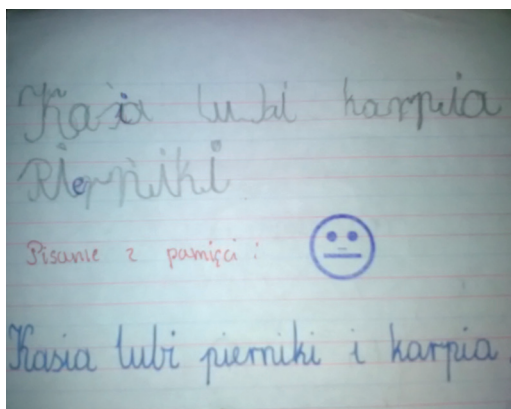 Kasia lubi karpia
Pierniki
Pisanie z pamięci:
Kasia lubi pierniki i karpia